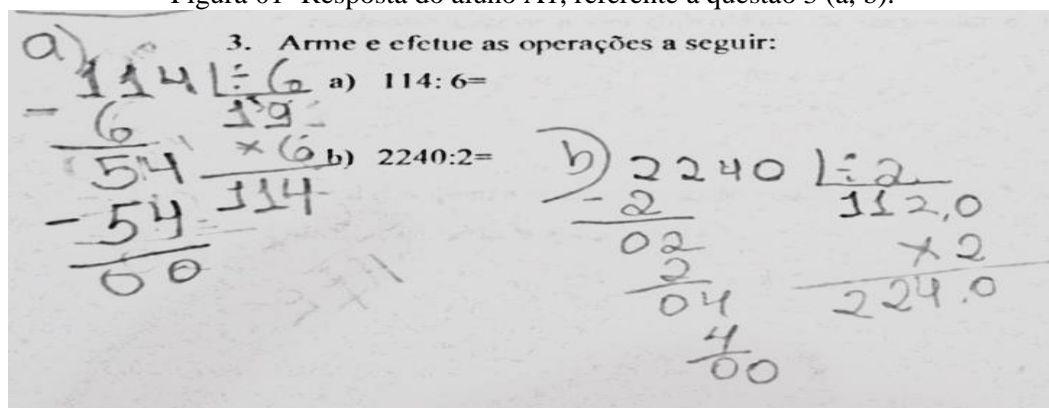 Figura 01- Resposta do aluno A1, referente à questão 3 (a, b).
3. Arme e efetue as operações a seguir:
a) 114: 6=
b) 2240:2=
a)
114 ÷ 6
- 6 19
54 × 6
- 54 114
00
b) 2240 ÷ 2
- 2 112,0
02 × 2
2 224.0
04
4
00